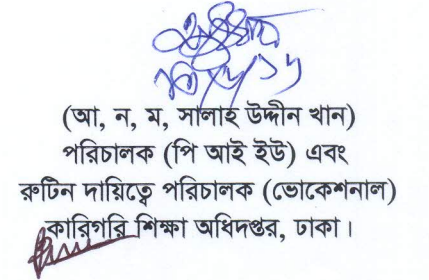 (আ, ন, ম, সালাহ উদ্দীন খান)
পরিচালক (পি আই ইউ) এবং
রুটিন দায়িত্বে পরিচালক (ভোকেশনাল)
কারিগরি শিক্ষা অধিদপ্তর, ঢাকা।